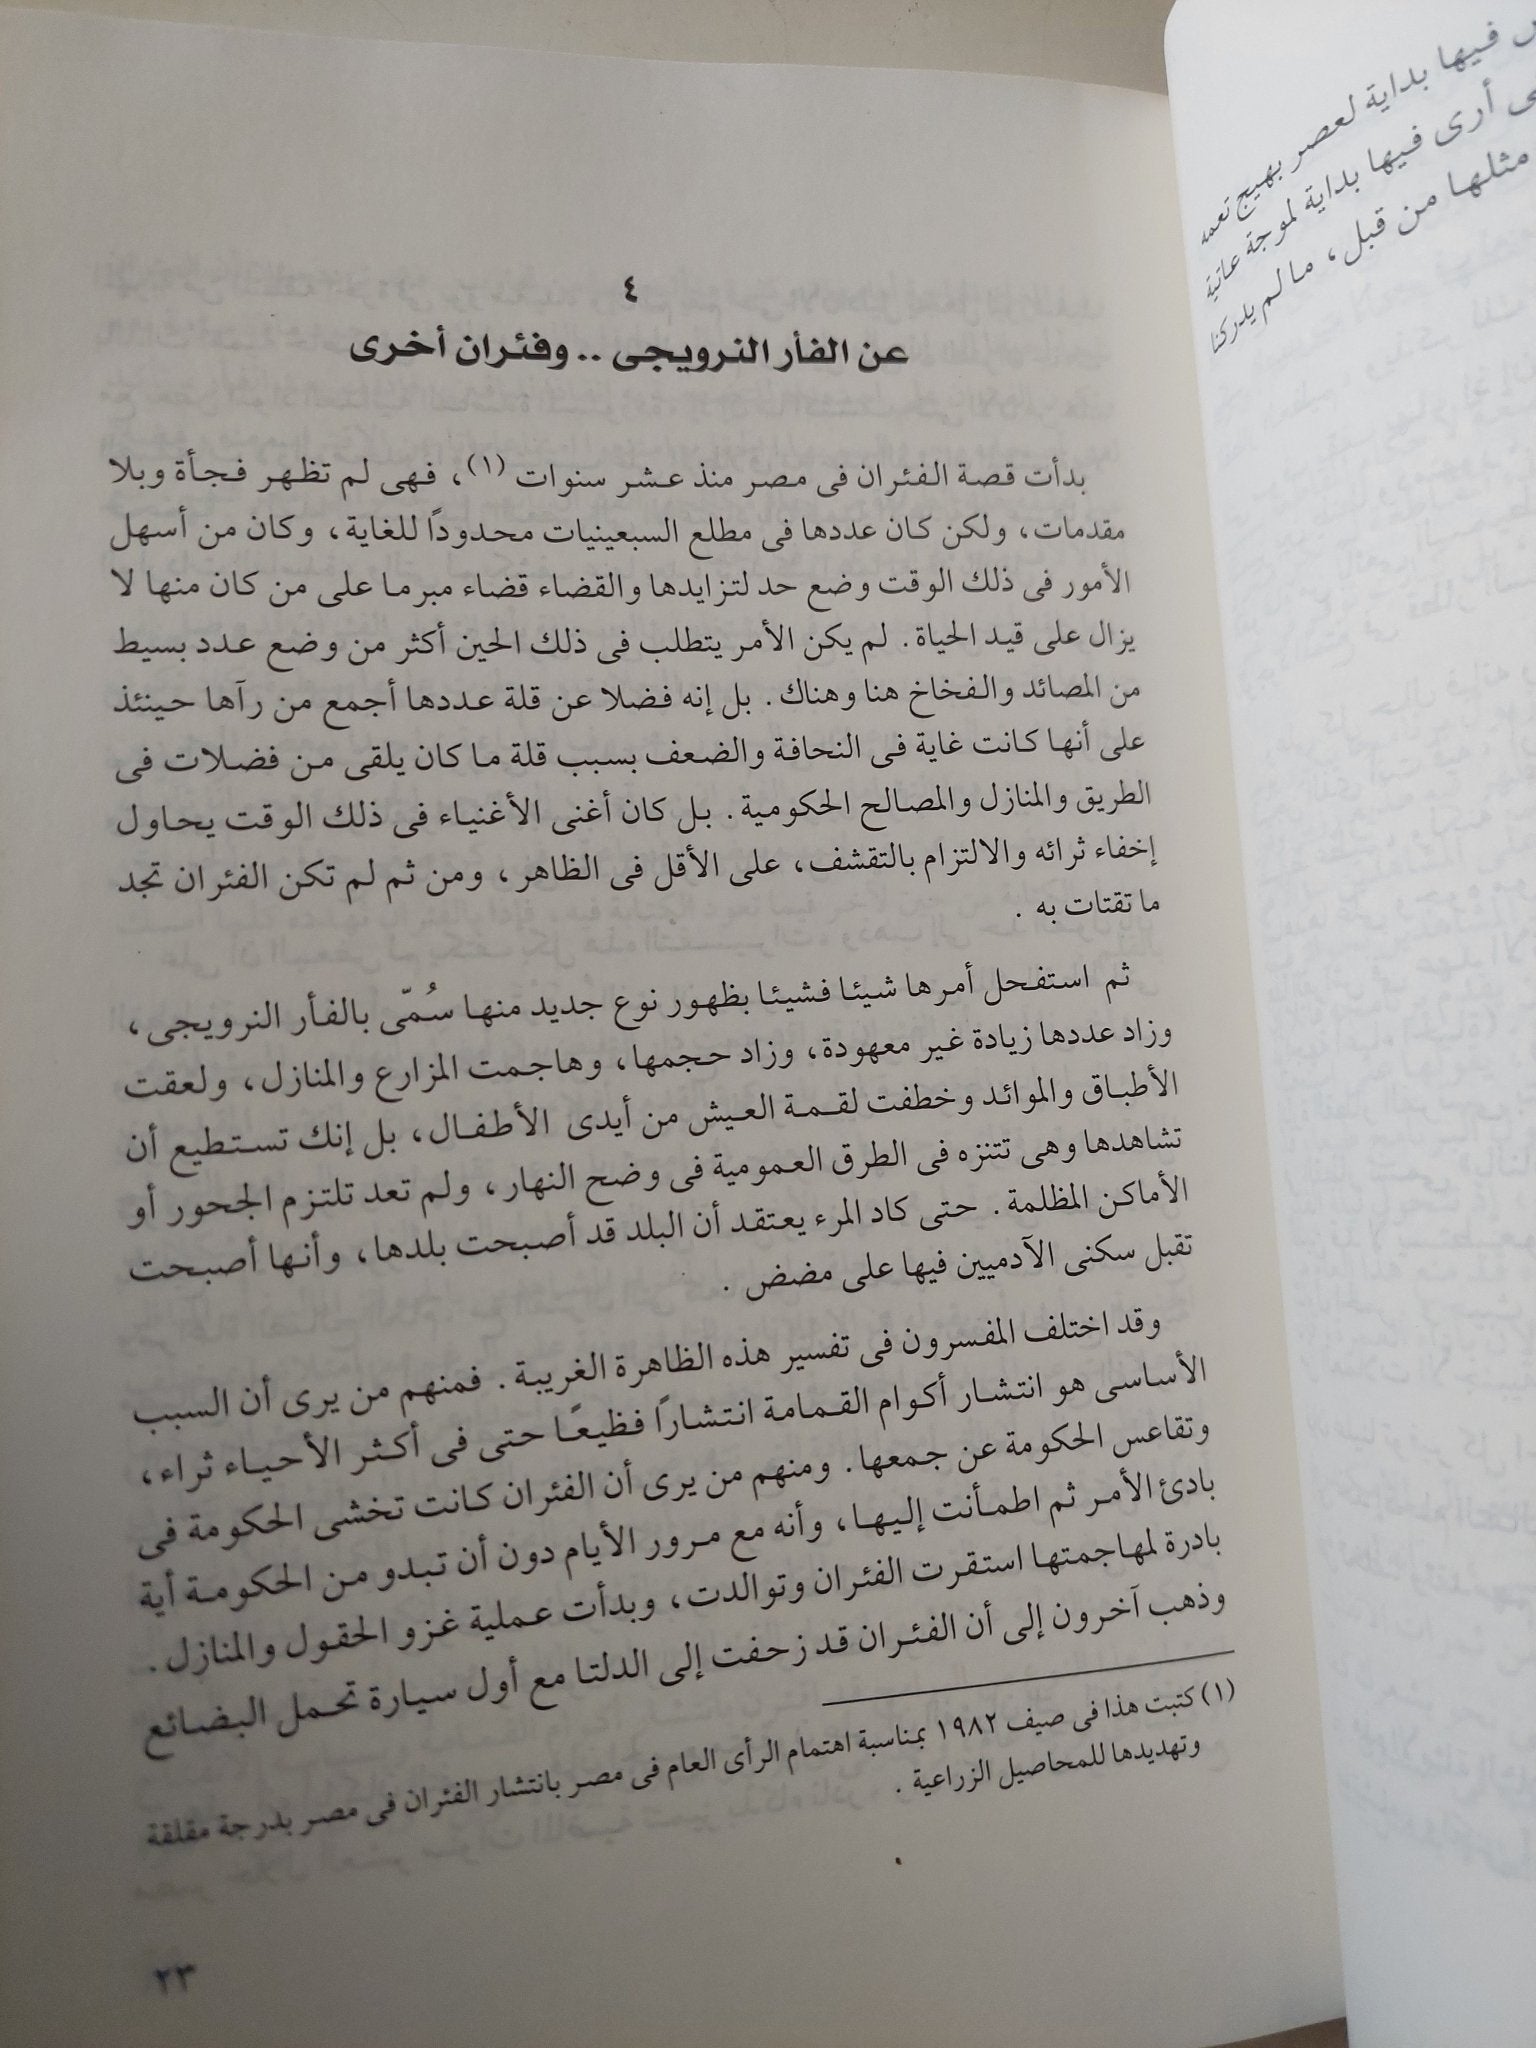 ٤
عن الفأر النرويجى .. وفئران أخرى
بدأت قصة الفئران فى مصر منذ عشر سنوات (١)، فهى لم تظهر فجأة وبلا
مقدمات، ولكن كان عددها فى مطلع السبعينيات محدودًا للغاية، وكان من أسهل
الأمور فى ذلك الوقت وضع حد لتزايدها والقضاء قضاء مبرما على من كان منها لا
يزال على قيد الحياة. لم يكن الأمر يتطلب فى ذلك الحين أكثر من وضع عدد بسيط
من المصائد والفخاخ هنا وهناك. بل إنه فضلا عن قلة عددها أجمع من رآها حينئذ
على أنها كانت غاية فى النحافة والضعف بسبب قلة ما كان يلقى من فضلات فى
الطريق والمنازل والمصالح الحكومية. بل كان أغنى الأغنياء فى ذلك الوقت يحاول
إخفاء ثرائه والالتزام بالتقشف، على الأقل فى الظاهر، ومن ثم لم تكن الفئران تجد
ما تقتات به .
ثم استفحل أمرها شيئا فشيئا بظهور نوع جديد منها سُمّى بالفأر النرويجى،
وزاد عددها زيادة غير معهودة، وزاد حجمها، وهاجمت المزارع والمنازل، ولعقت
الأطباق والموائد وخطفت لقمة العيش من أيدى الأطفال، بل إنك تستطيع أن
تشاهدها وهى تتنزه فى الطرق العمومية فى وضح النهار، ولم تعد تلتزم الجحور أو
الأماكن المظلمة. حتى كاد المرء يعتقد أن البلد قد أصبحت بلدها، وأنها أصبحت
تقبل سكنى الآدميين فيها على مضض .
وقد اختلف المفسرون فى تفسير هذه الظاهرة الغريبة. فمنهم من يرى أن السبب
الأساسى هو انتشار أكوام القمامة انتشارًا فظيعًا حتى فى أكثر الأحياء ثراء،
وتقاعس الحكومة عن جمعها. ومنهم من يرى أن الفئران كانت تخشى الحكومة فى
بادئ الأمر ثم اطمأنت إليها، وأنه مع مرور الأيام دون أن تبدو من الحكومة أية
بادرة لمهاجمتها استقرت الفئران وتوالدت، وبدأت عملية غزو الحقول والمنازل.
وذهب آخرون إلى أن الفئران قد زحفت إلى الدلتا مع أول سيارة تحمل البضائع
(١) كتبت هذا فى صيف ١٩٨٢ بمناسبة اهتمام الرأى العام فى مصر بانتشار الفئران فى مصر بدرجة مقلقة
وتهديدها للمحاصيل الزراعية .
٢٣
فيها بداية لعصر بهيج تعمه
أرى فيها بداية لموجة عاتية
مثلها من قبل، ما لم يدركنا